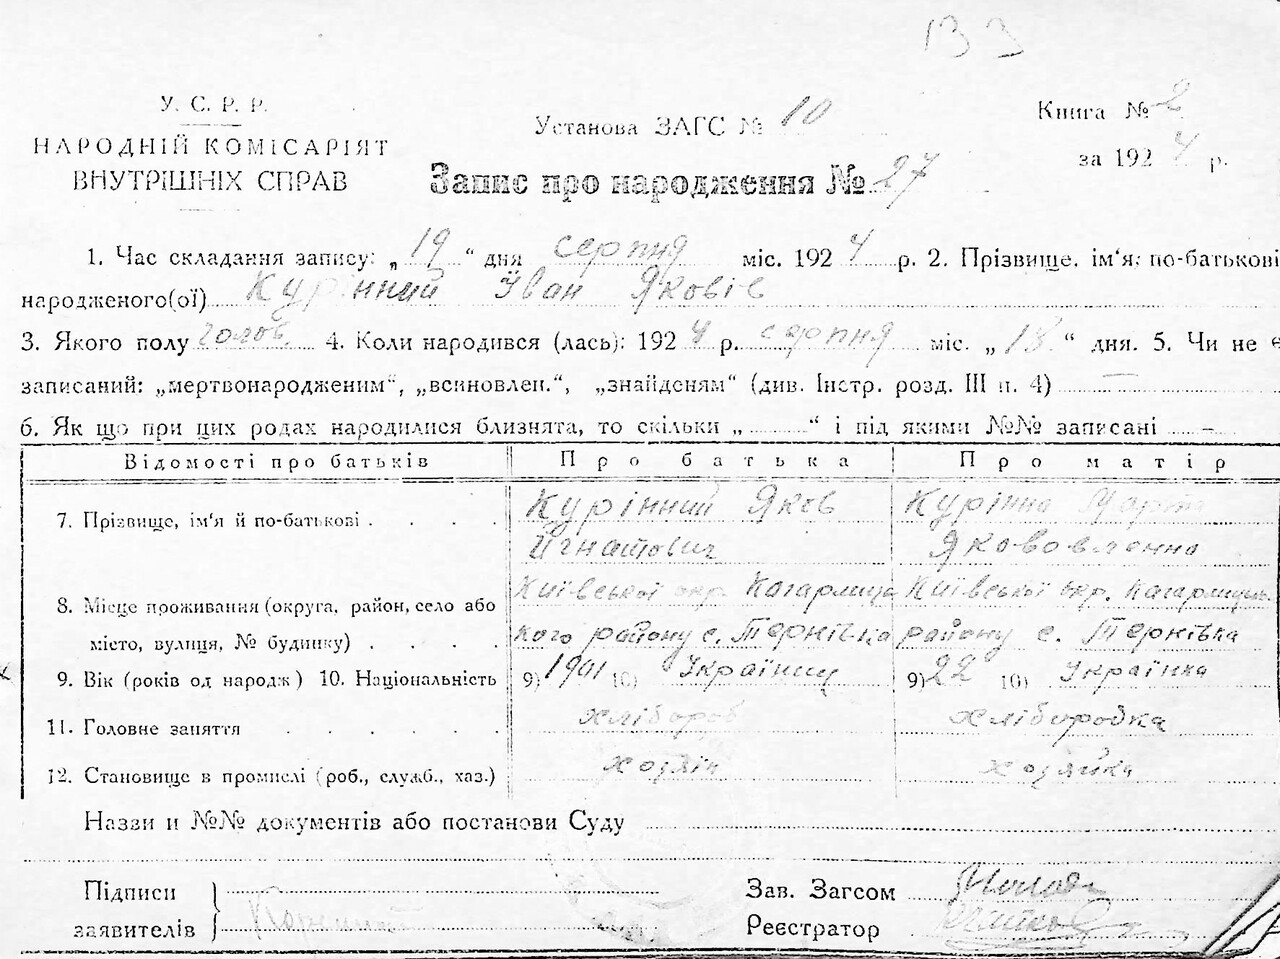 133
У. С. Р. Р.
НАРОДНІЙ КОМІСАРІЯТ
ВНУТРІШНІХ СПРАВ
Установа ЗАГС № 10
Запис про народження № 27
Книга № 2
за 1924 р.
1. Час складання запису: „19“ дня серпня міс. 1924 р. 2. Прізвище, ім'я, по-батькові
народженого(ої) Курінний Іван Яковів
3. Якого полу голов. 4. Коли народився (лась): 1924 р. серпня міс. „18“ дня. 5. Чи не є
записаний: „мертвонародженим“, „всиновлен.“, „знайденям“ (див. Інстр. розд. III п. 4) —
6. Як що при цих родах народилися близнята, то скільки „ “ і під якими №№ записані –
Відомості про батьків Про батька Про матір
7. Прізвище, ім'я й по-батькові Курінний Яков Курінна Марта
Ігнатович Яквовленна
8. Місце проживання (округа, район, село або Київської окр Кагарлиць Київської окр. Кагарлицьк.
місто, вулиця, № будинку) кого району с. Тернівка району с. Тернівка
9. Вік (років од народж) 10. Національність 9) 1901 10) Українец 9) 22 10) Українка
11. Головне заняття хлібороб хлібородка
12. Становище в промислі (роб., служб., хаз.) хозяін хозяйка
Назви и №№ документів або постанови Суду
Підписи
заявителів
Зав. Загсом
Реєстратор